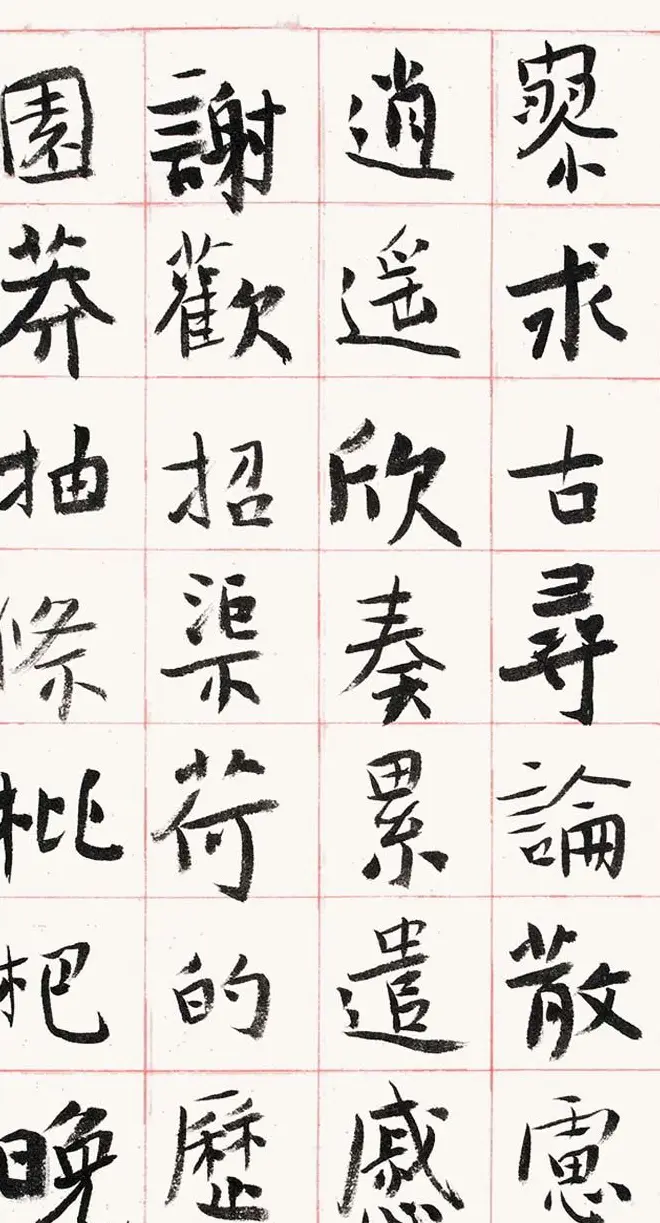 寥求古尋論散慮
逍遥欣奏累遣慼
謝歡招渠荷的歷
園莽抽條枇杷晚